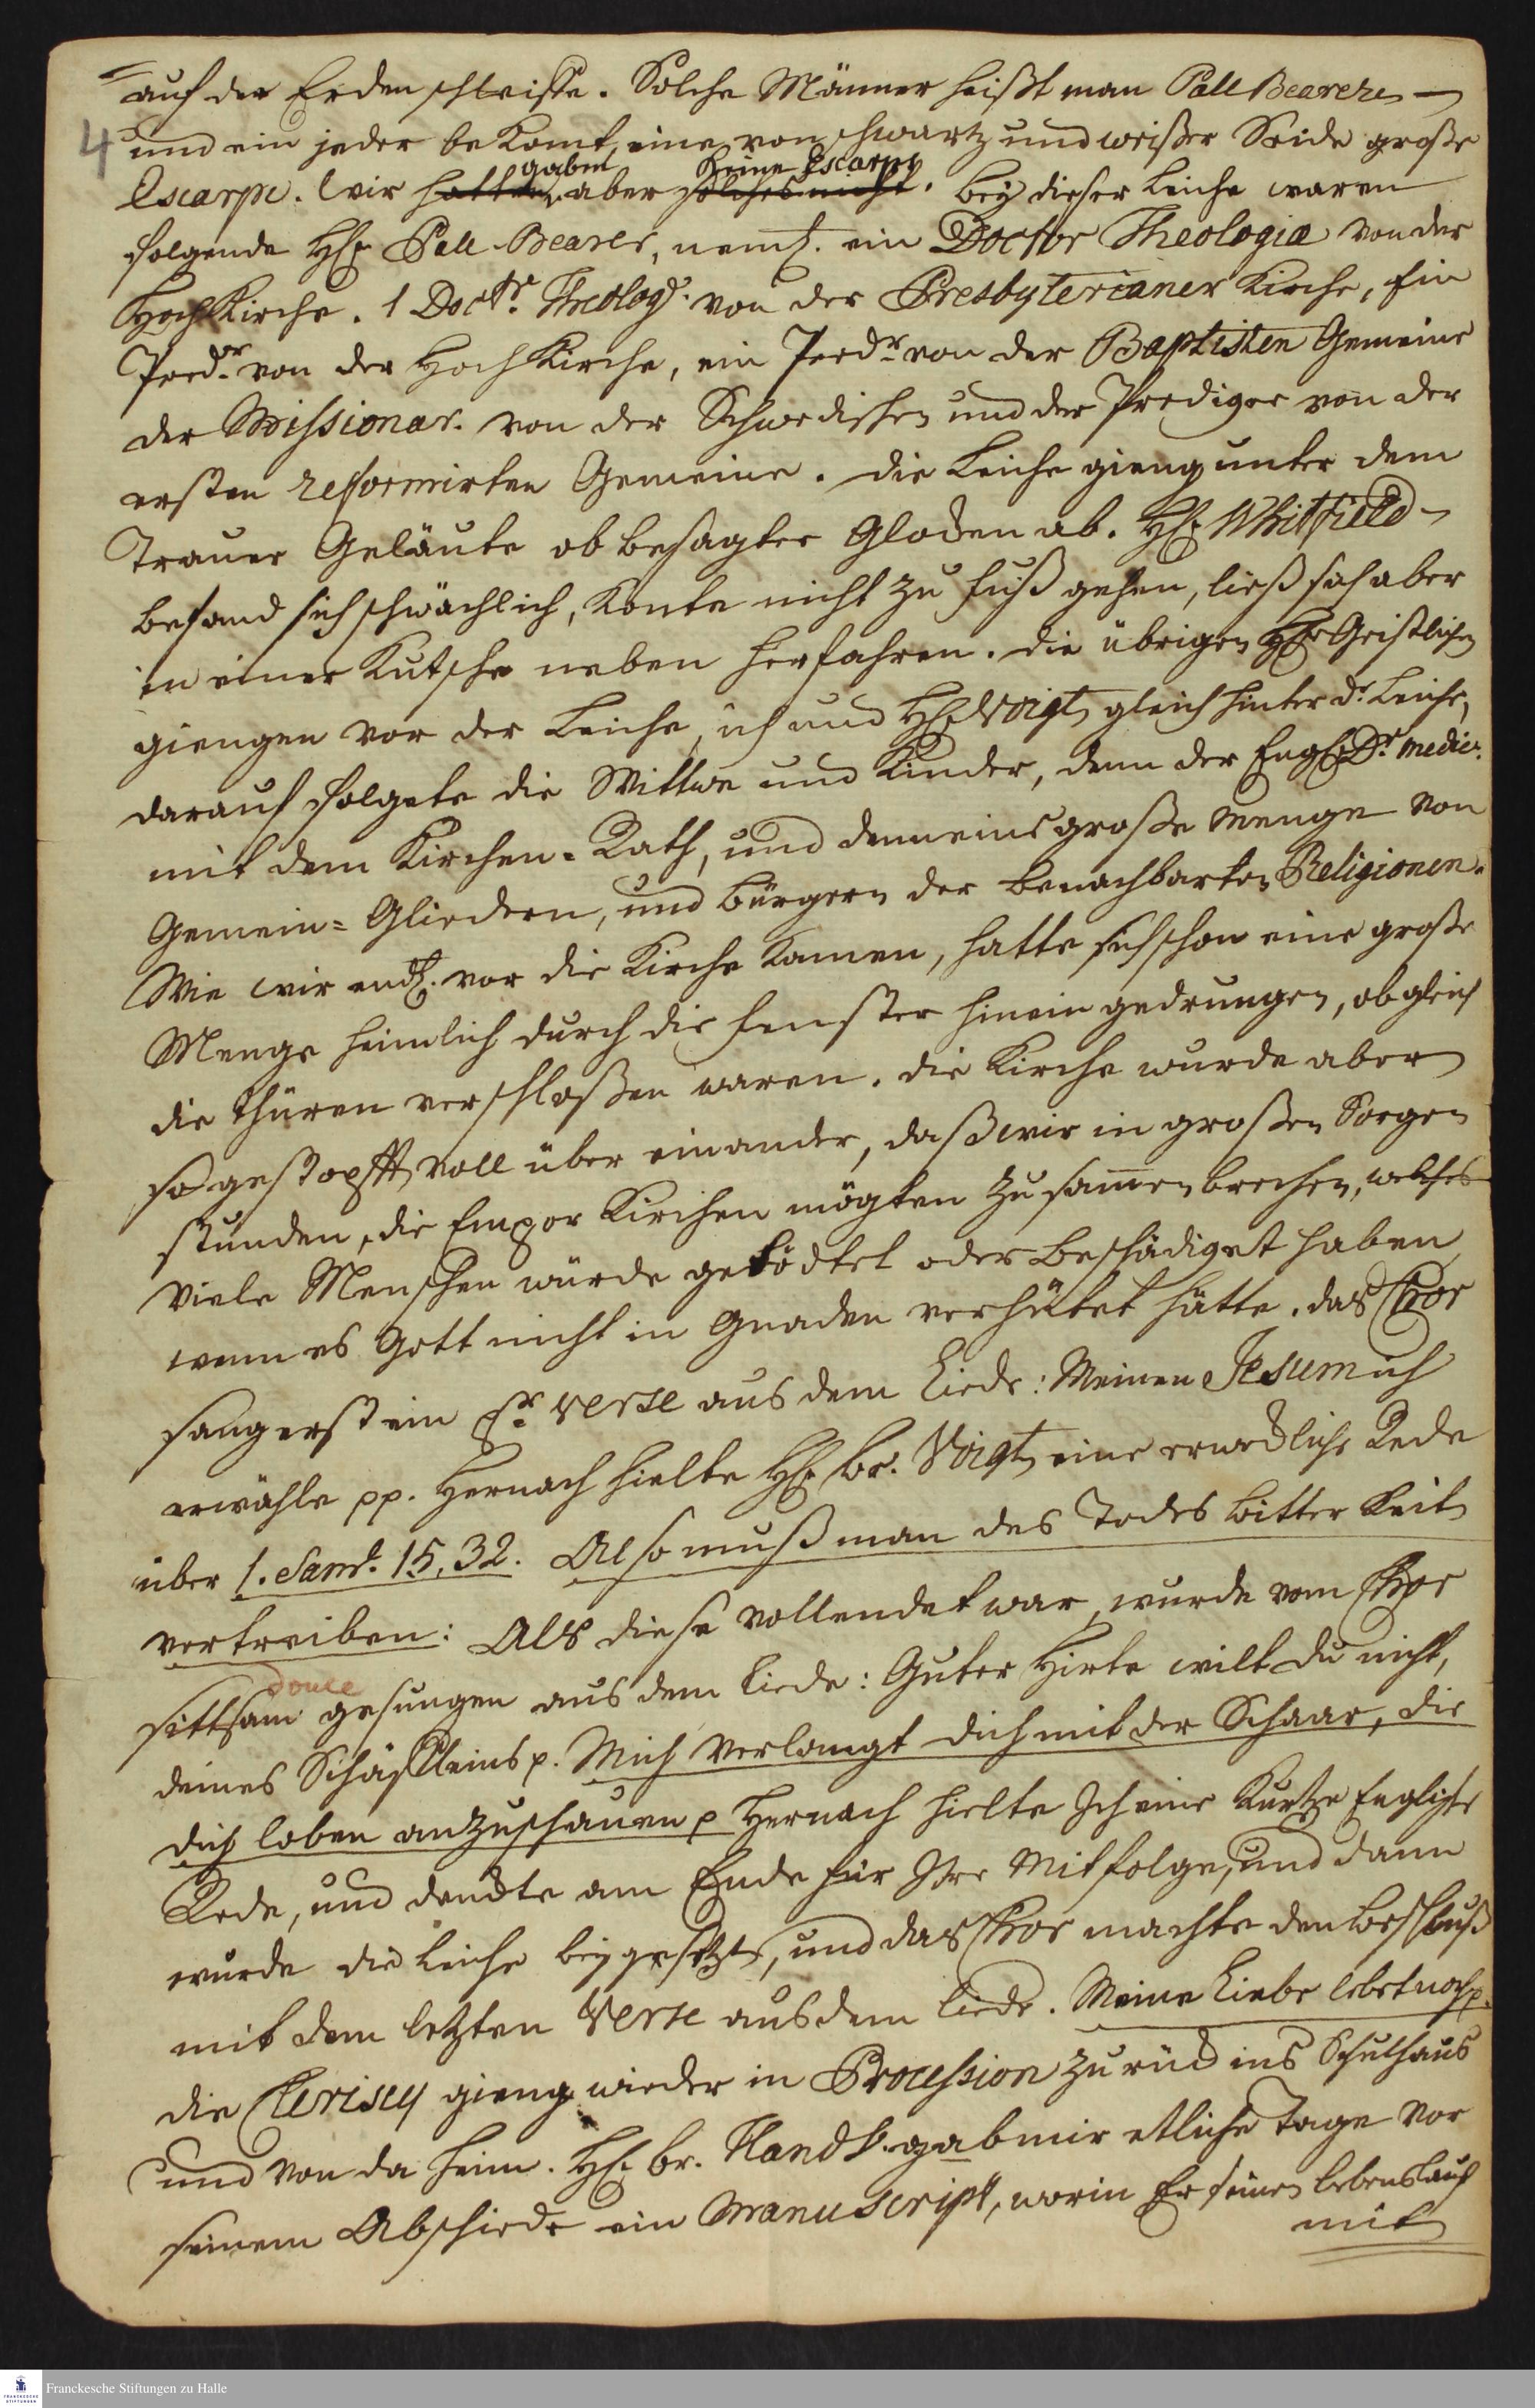 auf der Erden schleisse. Solche Männer heißt man Pall Bearers —
4
und ein jeder bekomt eine von schwartz und weißer Seide große
gaben keine Escarpe
Escarpe. Wir hatten aber solches nicht. bey dieser Leiche waren
folgende HE Pall-Bearer, neml. ein Doctor Theologiæ von der
HochKirche. 1 Doctr. Theolog: von der Presbyterianer Kirche, Ein
Predr. von der HochKirche, ein Predr. von der Baptisten Gemeine
der Missionar. von der Schwedischen und der Prediger von der
ersten reformirten Gemeine. Die Leiche gieng unter dem
Trauer Geläute ob besagter Glocken ab. HE Whitfield
befand sich schwächlich, konte nicht zu fuß gehen, ließ sich aber
in einer Kutsche neben herfahren. Die übrigen HE Geistlichen
giengen vor der Leiche, ich und HE Voigt gleich hinter dr. Leiche,
darauf folgete die Wittwe und Kinder, denn der Engl. Dr. medic:
mit dem Kirchen-Rath, und denn eine große Menge von
Gemein-Gliedern, und bürgern der benachbarten Religionen.
Wie wir endl. vor die Kirche kamen, hatte sich schon eine große
Menge heimlich durch die fenster hinein gedrungen, obgleich
die thüren verschloßen waren. Die Kirche wurde aber
so gestopfft voll über einander, daß wir in großen Sorgen
stunden, die Empor Kirchen mögten zusammen brechen, welches
viele Menschen würde getödtet oder beschädiget haben,
wenn es Gott nicht in Gnaden verhütet hätte. das Chor
sang erst ein verse aus dem Liede: Meinen Jesum ich
erwähle pp. Hernach hielte HE br. Voigt eine erwecliche Rede
über 1. Sam. 15, 32. Also muß man des Todes bitterkeit
vertreiben: Als diese vollendet war, wurde vom Chor
douce
sittsam gesungen aus dem Liede: Guter Hirte wilt du nicht,
deines Schäffleins p. Mich verlangt dich mit der Schaar, die
dich loben anzuschauen p Hernach hielte Ich eine kurtze Englische
Rede, und danckte am Ende für Ihre Mitfolge, und dann
wurde die Leiche beygesetzt, und das Chor machte den Beschluß
mit dem letzten Verse aus dem Liede. Meine Liebe lebet noch p.
die Clerisey gieng wieder in Procession zurück ins Schulhaus
und von da heim. HE br. Handsh. gab mir etliche Tage vor
seinem Abschiede ein Manuscript, worin Er seinen lebenslauf
mit
Franckesche Stiftungen zu Halle